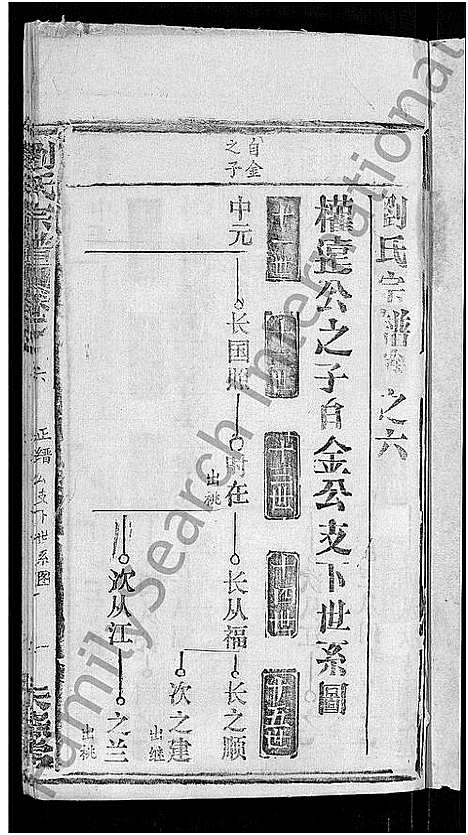 劉氏宗譜卷之六
權達公之子自金公支下世系圖
十一世
十二世
十三世
十四世
十五世
自金之子
中元
长国照
时在
出祧
长从福
长之顺
次之建
出继
次从江
之兰
出祧
劉氏宗譜
六
公支下世系图
一
FamilySearch International